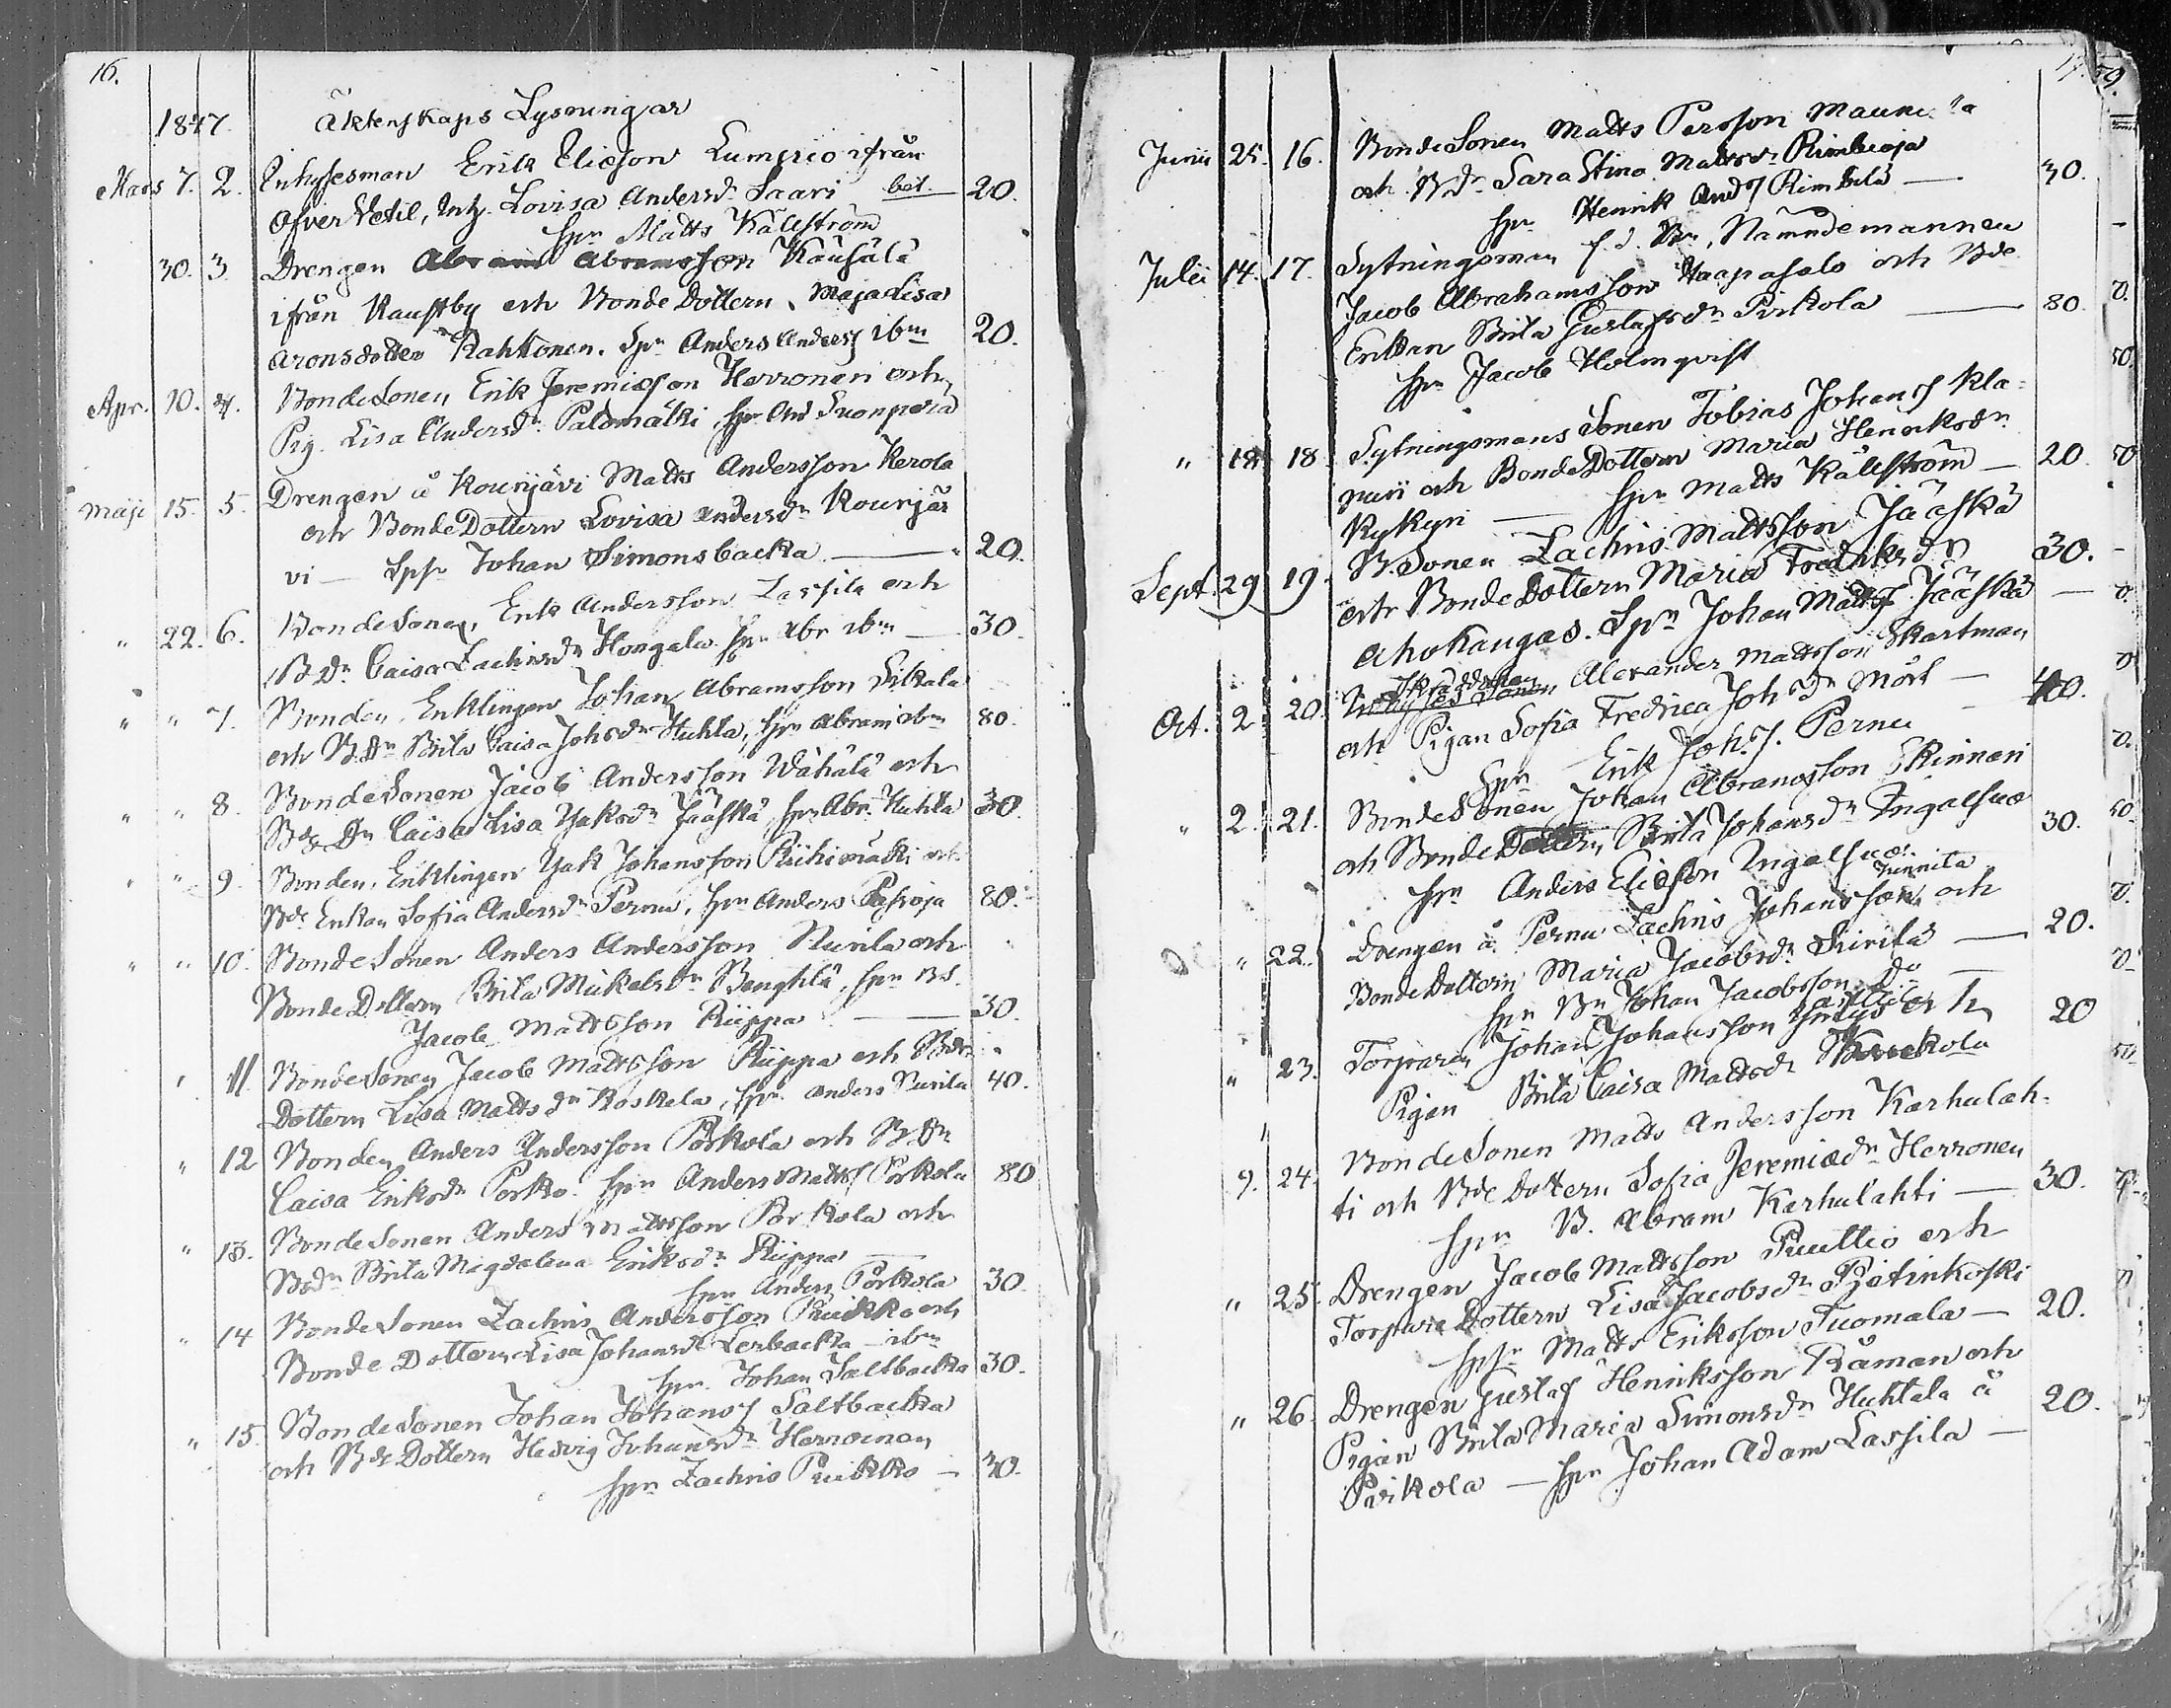 16.
1847. Äktenskaps Lysningar
Mars 7. 2. Inhysesman Erik Eliæson Lumpio ifrån
Öfver Vetil, Inh. Lovisa Andersdr Saari bet. 20.
spn Matts Källström
30. 3 Drengen Abram Abramsson Känsälä
ifrån Kaustby och BondeDottern Maja Lisa
Aronsdotter Rahkonen. Spn Anders Anderss ibm 20.
Apr. 10. 4. BondeSonen Erik Jeremiæson Herronen och
Pig. Lisa Andersdr Palomäki, spn And Suonperä
Maji 15. 5. Drengen å Kounjärvi Matts Andersson Kerola
och BondeDottern Lovisa Andersdr Kounjär
vi — Spn Johan Simonsbacka — 20.
" 22. 6. BondeSonen, Erik Andersson Lassila och
BDr Caisa Zachrisdr Hongala spn Abr ibm — 30.
" " 7. Bonden, Enklingen Johan Abramsson Sikala
och B.Dn Brita Caisa Johsdr Huhta, spn Abram ibm 80.
" " 8. BondeSonen Jacob Andersson Wähälä och
Bde Dn Caisa Lisa Jaksdr Jääskä, spn Abr. Huhta 30.
" " 9. Bonden, Enklingen Jak Johansson Riihimäki och
Bde Enkan Sofia Andersdr Pernu, spn Anders Pasioja 80.
" " 10. BondeSonen Anders Andersson Nurila och
BondeDottern Brita Mickelsdr Benghtä, spn BS.
Jacob Mattsson Riippa — 30.
" 11. BondeSonen Jacob Mattsson Riippa och Bde
Dottern Lisa Mattsdr Koskela, spn Anders Nurila 40.
" 12 Bonden Anders Andersson Porkola och B.Dn
Caisa Eriksdr Porko. spn Anders Matts Porkola 80
" 13. BondeSonen Anders Mattsson Porkola och
Bdr Brita Magdalena Eriksdr Riippa —
spn Anders Porkola 30.
" 14 BondeSonen Zachris Andersson Puikko och
Bonde Dottern Lisa Johansdr Lerbacka — ibm
spn Johan Saltbacka 30.
" 15. BondeSonen Johan Johanss Saltbacka
och Bde Dottern Hedvig Johansdr Herroinen
spn Zachris Puikko — 30.
17.
Junii 25. 16. BondeSonen Matts Persson
och BDr Sara Stina Mattsdr Rimbioja
spn Henrik Ands Rimbilä — 30.
Julii 14. 17. Sytningsman f.d. Bn, Nämndemannen
Jacob Abrahamsson Haapasalo och Bde
Enkan Brita Gustafsdr Pirkola — 80.
spn Jacob Holmqvist
" 18 18. Sytningsmans Sonen Tobias Johanss Kla-
puri och BondeDottern Maria Henriksdr
Kykyri — spn Matts Källström — 20.
Sept. 29 19. B.Sonen Zachris Mattsson Jääskä
och BondeDottern Maria Fredriksdr 30.
Ahokangas. Spn Johan Matts Jääskä —
Oct. 2 20. Skräddaren Alexander Mattsson Skartman
och Pigan Sofia Fredrica Johsdr Mört — 40.
spn Erik Johs. Pernu —
" 2. 21. BondeSonen Johan Abramsson Skinnari
och BondeDottern Brita Johansdr Ingalsuo 30.
spn Anders Eliæson Ingalsuo.
" 22. Drengen å Pernu Zachris Johansson Junnila och
BondeDottern Maria Jacobsdr — 20.
spn Bn Johan Jacobsson Do —
" 23. Torparen Johan Johansson och 20
Pigan Brita Caisa Mattsdr
9. 24. BondeSonen Matts Andersson Karhulah-
ti och Bde Dottern Sofia Jeremiædr Herronen
spn B. Abram Karhulahti — 30.
" 25. Drengen Jacob Mattsson Puutio och
Torpare Dottern Lisa Jacobsdr Pyätinkoski
spn Matts Eriksson Tuomala — 20.
" 26. Drengen Gustaf Henriksson Råman och
Pigan Brita Maria Simonsdr Huhtala å 20.
Pirkola — spn Johan Adam Lassila —